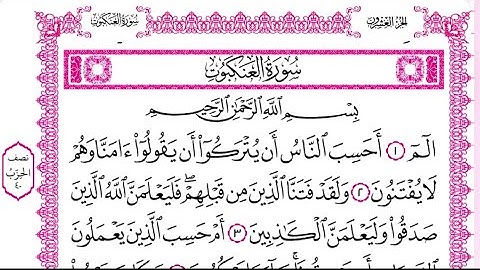 الجزء العشرون
سورة العنكبوت
سُورَةُ الْعَنكَبُوتِ
بِسْمِ اللَّهِ الرَّحْمَٰنِ الرَّحِيمِ
الٓمٓ ١ أَحَسِبَ النَّاسُ أَن يُتْرَكُوٓا۟ أَن يَقُولُوٓا۟ ءَامَنَّا وَهُمْ
لَا يُفْتَنُونَ ٢ وَلَقَدْ فَتَنَّا الَّذِينَ مِن قَبْلِهِمْ ۖ فَلَيَعْلَمَنَّ اللَّهُ الَّذِينَ
صَدَقُوا۟ وَلَيَعْلَمَنَّ الْكَٰذِبِينَ ٣ أَمْ حَسِبَ الَّذِينَ يَعْمَلُونَ
نصف
الحزب
٤٠